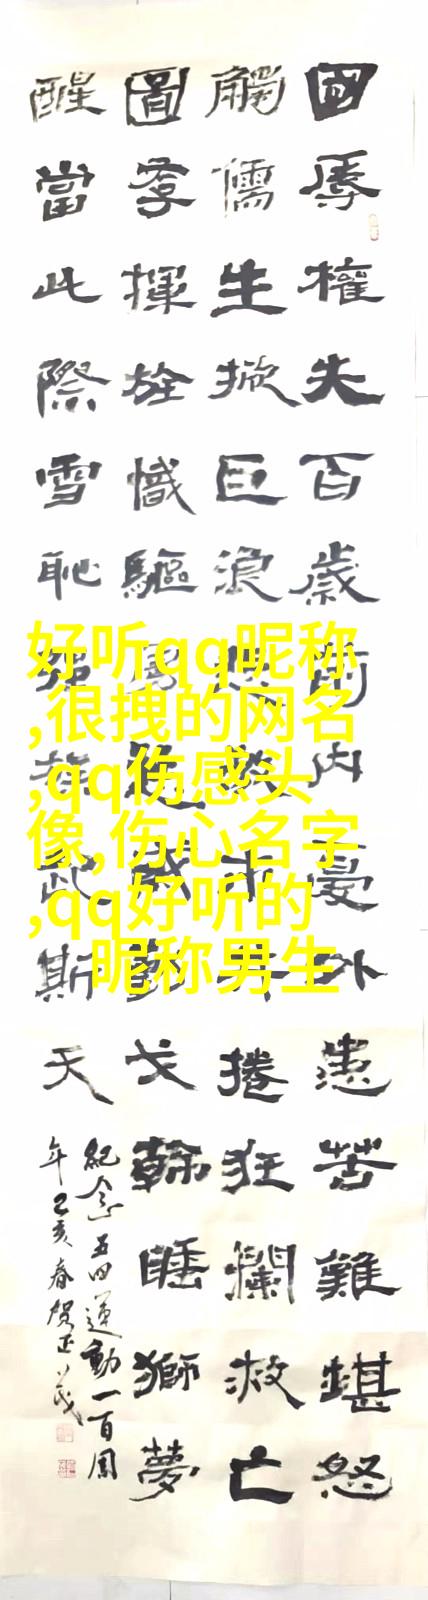 國辱權失百歲間内憂外患苦難堪怒
觸儒生掀巨浪捲狂瀾救亡
圖存揮旌幟驅戈睡獅夢
醒當此際雪恥強斯天
紀念五四運動一百周
年己亥春賀正茂
好听qq昵称
,很拽的网名
,qq伤感头
像,伤心名字
,qq好听的
昵称男生